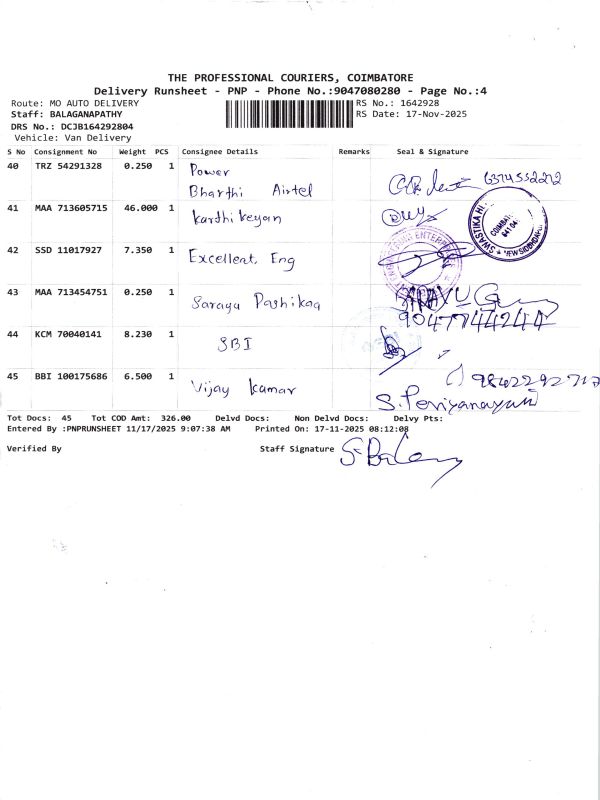 THE PROFESSIONAL COURIERS, COIMBATORE
Delivery Runsheet - PNP - Phone No.:9047080280 - Page No.:4
Route: MO AUTO DELIVERY
RS No.: 1642928
Staff: BALAGANAPATHY
RS Date: 17-Nov-2025
DRS No.: DCJB164292804
Vehicle: Van Delivery
S No Consignment No Weight PCS Consignee Details Remarks Seal & Signature
40 TRZ 54291328 0.250 1 Power
Bharthi Airtel 6374552272
41 MAA 713605715 46.000 1 Karthikeyan
42 SSD 11017927 7.350 1 Excellent Eng
43 MAA 713454751 0.250 1 Saraya
9047744244
44 KCM 70040141 8.230 1 SBI
45 BBI 100175686 6.500 1 Vijay Kumar
S. Periyanayan
Tot Docs: 45 Tot COD Amt: 326.00 Delvd Docs: Non Delvd Docs: Delvy Pts:
Entered By :PNPRUNSHEET 11/17/2025 9:07:38 AM Printed On: 17-11-2025 08:12:08
Verified By Staff Signature